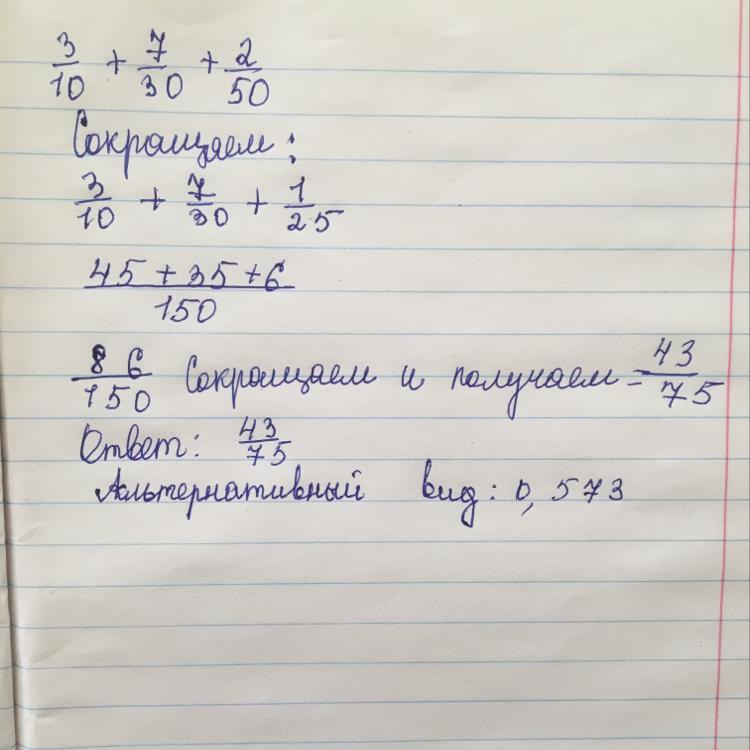 3/10 + 7/30 + 2/50
Сокращаем:
3/10 + 7/30 + 1/25
45 + 35 + 6 / 150
86/150 Сокращаем и получаем = 43/75
Ответ: 43/75
Альтернативный вид: 0,573